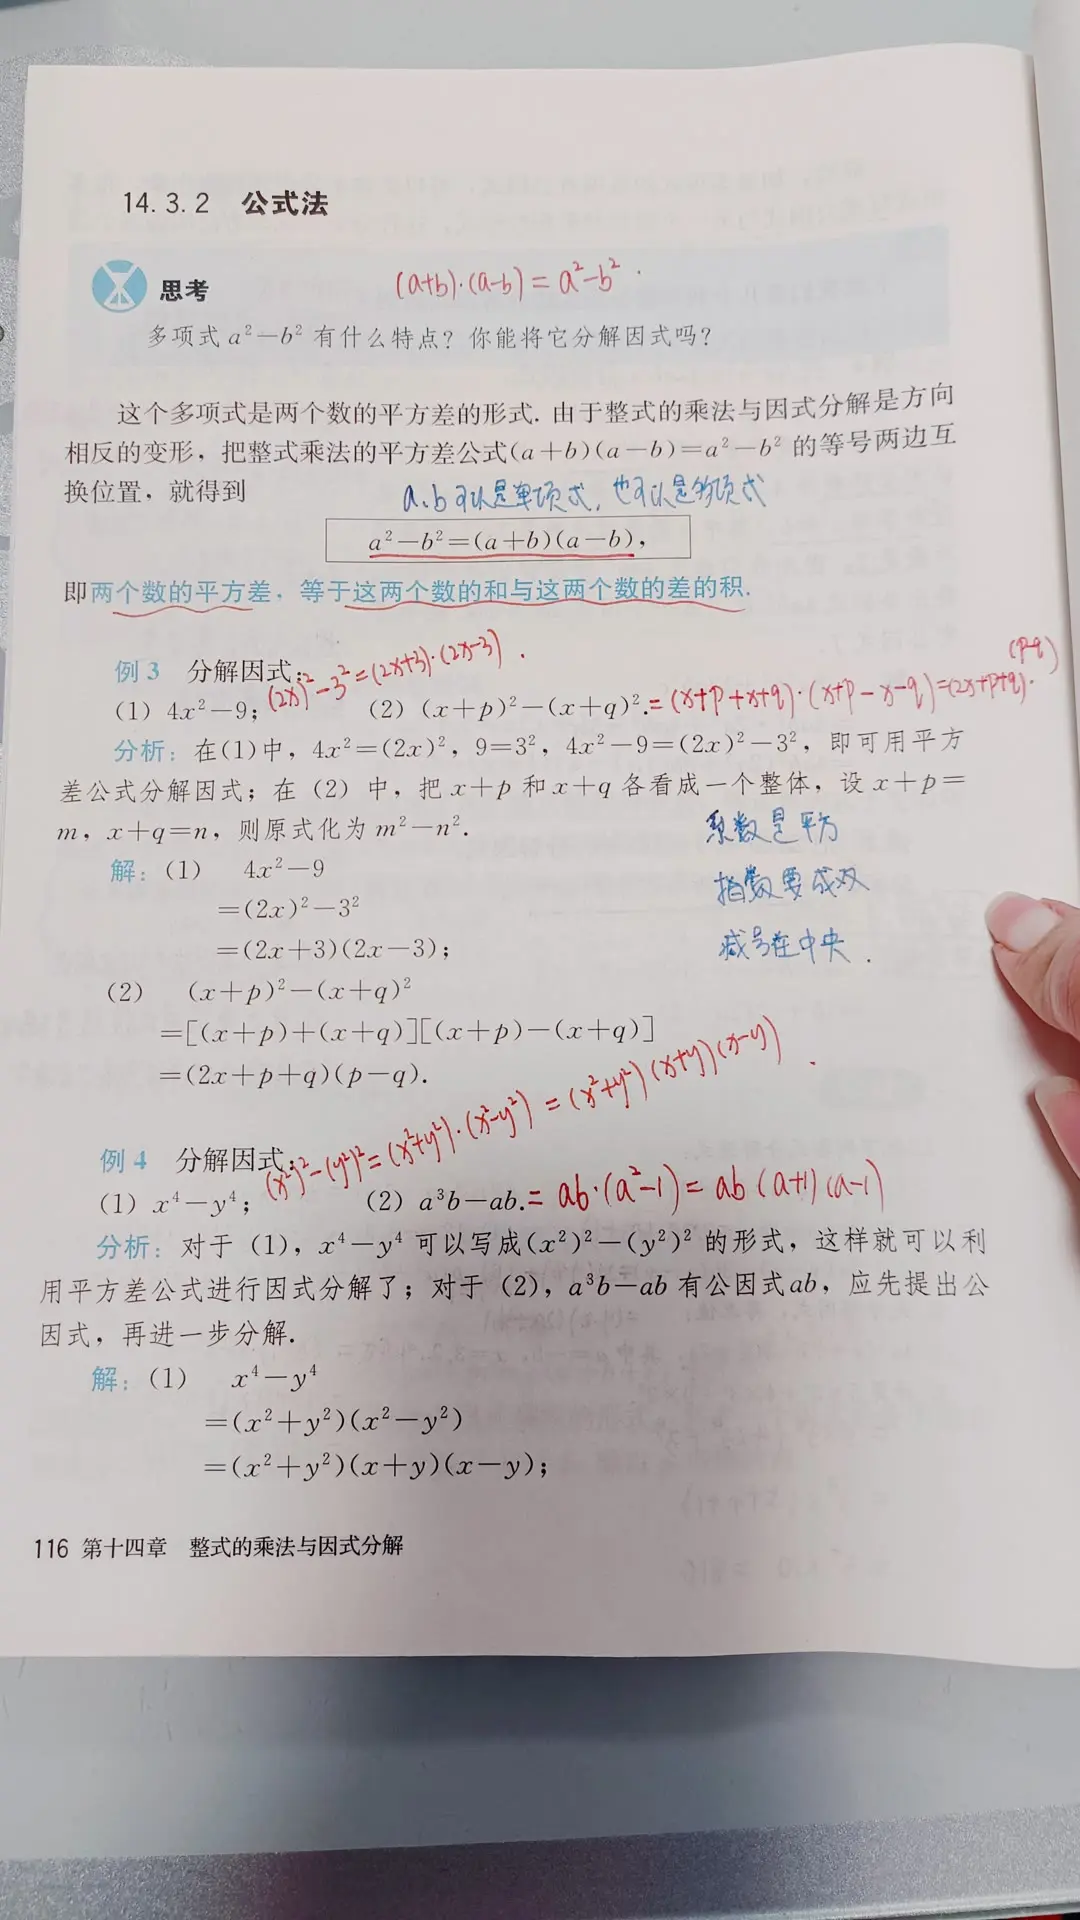 14.3.2 公式法
思考
(a+b)·(a-b)=a²-b².
多项式 a²-b² 有什么特点？你能将它分解因式吗？
这个多项式是两个数的平方差的形式. 由于整式的乘法与因式分解是方向
相反的变形，把整式乘法的平方差公式(a+b)(a-b)=a²-b² 的等号两边互
换位置，就得到
a、b可以是单项式，也可以是多项式
a²-b²=(a+b)(a-b),
即两个数的平方差，等于这两个数的和与这两个数的差的积.
例 3 分解因式：
(2x)²-3²=(2x+3)·(2x-3).
(1) 4x²-9; (2) (x+p)²-(x+q)².=(x+p+x+q)·(x+p-x-q)=(2x+p+q)·
(p-q)
分析：在(1)中，4x²=(2x)²，9=3²，4x²-9=(2x)²-3²，即可用平方
差公式分解因式；在 (2) 中，把 x+p 和 x+q 各看成一个整体，设 x+p=
m，x+q=n，则原式化为 m²-n².
系数是平方
指数要成双
减号在中央.
解：(1) 4x²-9
=(2x)²-3²
=(2x+3)(2x-3);
(2) (x+p)²-(x+q)²
=[(x+p)+(x+q)][(x+p)-(x+q)]
=(2x+p+q)(p-q).
例 4 分解因式：
(x²)²-(y²)²=(x²+y²)·(x²-y²)=(x²+y²)(x+y)(x-y).
(1) x⁴-y⁴; (2) a³b-ab.=ab·(a²-1)=ab(a+1)(a-1)
分析：对于 (1)，x⁴-y⁴ 可以写成(x²)²-(y²)² 的形式，这样就可以利
用平方差公式进行因式分解了；对于 (2)，a³b-ab 有公因式ab，应先提出公
因式，再进一步分解.
解：(1) x⁴-y⁴
=(x²+y²)(x²-y²)
=(x²+y²)(x+y)(x-y);
116 第十四章 整式的乘法与因式分解